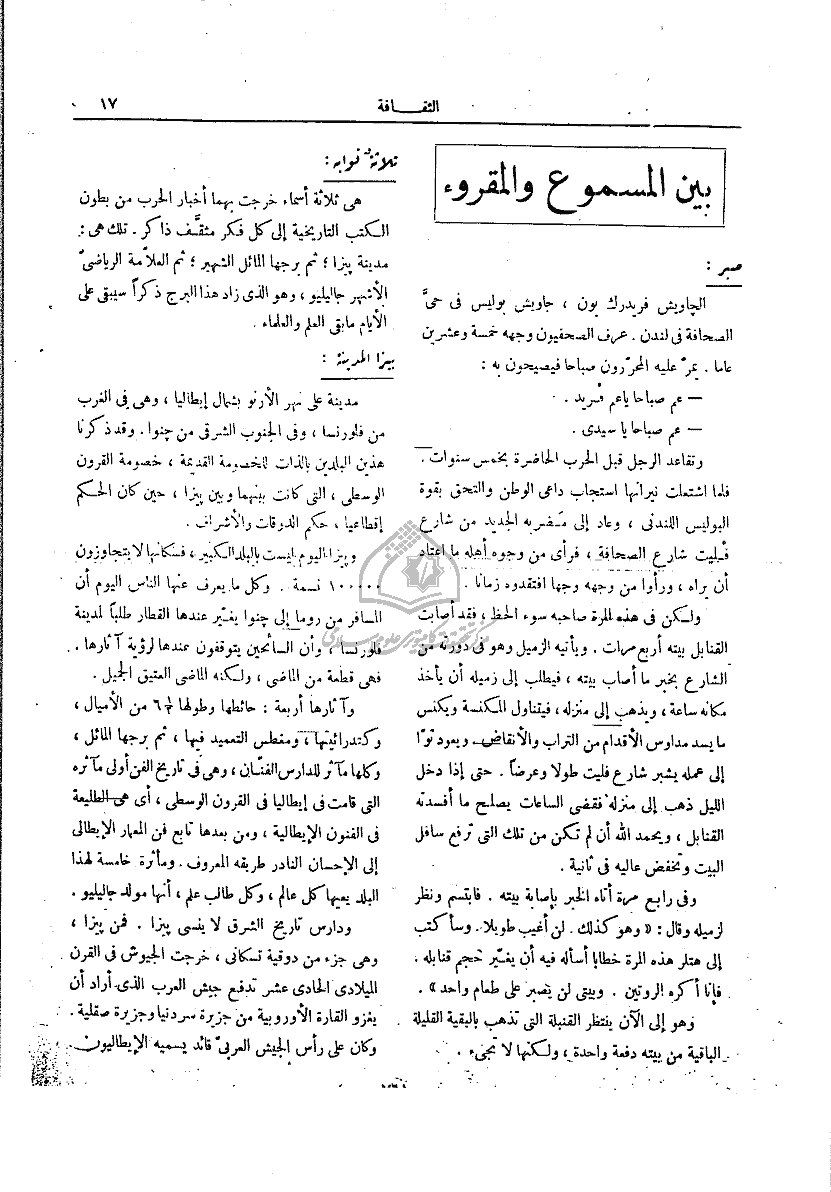 الثقـــافة
١٧
بين المسموع والمقروء
صبر :
الچاويش فريدرك بون ، جاويش بوليس فى حىّ
الصحافة فى لندن . عرف الصحفيون وجهه خمسة وعشرين
عاما . يمرّ عليه المحرّرون صباحا فيصيحون به :
— عم صباحا ياعم فريد .
— عم صباحا يا سيدى .
وتقاعد الرجل قبل الحرب الحاضرة بخمس سنوات .
فلما اشتعلت نيرانها استجاب داعى الوطن والتحق بقوة
البوليس اللندنى ، وعاد إلى مضربه الجديد من شارع
فليت شارع الصحافة ، فرأى من وجوه أهله ما اعتاد
أن يراه ، ورأوا من وجهه وجها افتقدوه زمانا .
ولكن فى هذه المرة صاحبه سوء الحظ ، فقد أصابت
القنابل بيته أربع مرات . ويأتيه الزميل وهو فى دورته من
الشارع بخبر ما أصاب بيته ، فيطلب إلى زميله أن يأخذ
مكانه ساعة ، ويذهب إلى منزله ، فيتناول المكنسة ويكنس
ما يسد مدارس الأقدام من التراب والأنقاض . ويعود توّا
إلى عمله يشبر شارع فليت طولا وعرضاً . حتى إذا دخل
الليل ذهب إلى منزله فقضى الساعات يصلح ما أفسدته
القنابل ، ويحمد الله أن لم تكن من تلك التى ترفع سافل
البيت وتخفض عاليه فى ثانية .
وفى رابع مرة أتاه الخبر بإصابة بيته . فابتسم ونظر
لزميله وقال : « وهو كذلك . لن أغيب طويلا . وسأكتب
إلى هتلر هذه المرة خطابا أسأله فيه أن يغيّر حجم قنابله .
فإنا أكره الروتين . وبيتى لن يصبر على طعام واحد » .
وهو إلى الآن ينتظر القنبلة التى تذهب بالبقية القليلة
الباقية من بيته دفعة واحدة ، ولكنها لا تجىء .
ثلاثة نوابه :
هى ثلاثة أسماء خرجت بهما أخبار الحرب من بطون
الكتب التاريخية إلى كل فكر مثقَّف ذاكر . تلك هى :
مدينة پيزا ؛ ثم برجها المائل الشهير ؛ ثم العلاّمة الرياضىّ
الأشهر جاليليو ، وهو الذى زاد هذا البرج ذكراً سيبقى على
الأيام مابقى العلم والعلماء .
بيزا المدينة :
مدينة على نهر الأرنو بشمال إيطاليا ، وهى فى الغرب
من فلورنسا ، وفى الجنوب الشرقى من چنوا . وقد ذكرنا
هذين البلدين بالذات للخصومة القديمة ، خصومة القرون
الوسطى ، التى كانت بينهما وبين پيزا ، حين كان الحكم
إقطاعيا ، حكم الدوقات والأشراف .
وپيزا اليوم ليست بالبلد الكبير ، فسكانها لا يتجاوزون
١٠٠٠٠٠ نسمة . وكل ما يعرف عنها الناس اليوم أن
المسافر من روما إلى چنوا يغيّر عندها القطار طلباً لمدينة
فلورنسا ، وأن السائحين يتوقفون عندها لرؤية آثارها .
فهى قطعة من الماضى ، ولكنه الماضى العتيق الجميل .
وآثارها أربعة : حائطها وطولها من الأميال ،
وكتدرائيتها ، ومغطس التعميد فيها ، ثم برجها المائل ،
وكلها مآثر للدارس الفنّان ، وهى فى تاريخ الفن أولى مآثره
التى قامت فى إيطاليا فى القرون الوسطى ، أى هى الطليعة
فى الفنون الإيطالية ، ومن بعدها تابع فن المعمار الإيطالى
إلى الإحسان النادر طريقه المعروف . ومأثرة خامسة لهذا
البلد يعيها كل عالم ، وكل طالب علم ، أنها مولد جاليليو .
ودارس تاريخ الشرق لا ينسى پيزا . فمن پيزا ،
وهى جزء من دوقية تسكانى ، خرجت الجيوش فى القرن
الميلادى الحادى عشر تدفع جيش العرب الذى أراد أن
يغزو القارة الأوروبية من جزيرة سردنيا وجزيرة صقلية .
وكان على رأس الجيش العربىّ قائد يسميه الإيطاليون